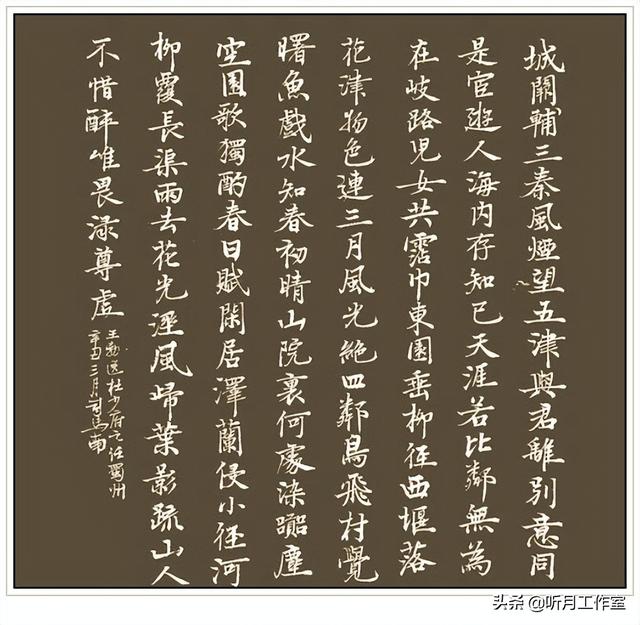 城闕輔三秦風煙望五津與君離別意同
是宦遊人海内存知己天涯若比鄰無為
在岐路兒女共霑巾東園垂柳徑西堰落
花津物色連三月風光絶四鄰鳥飛村覺
曙魚戲水知春初晴山院裏何處染囂塵
空園歌獨酌春日賦閑居澤蘭侵小徑河
柳覆長渠雨去花光溼風歸葉影疏山人
不惜醉唯畏渌尊虛
王勃送杜少府之任蜀州
辛丑三月司馬南
头条 @听月工作室